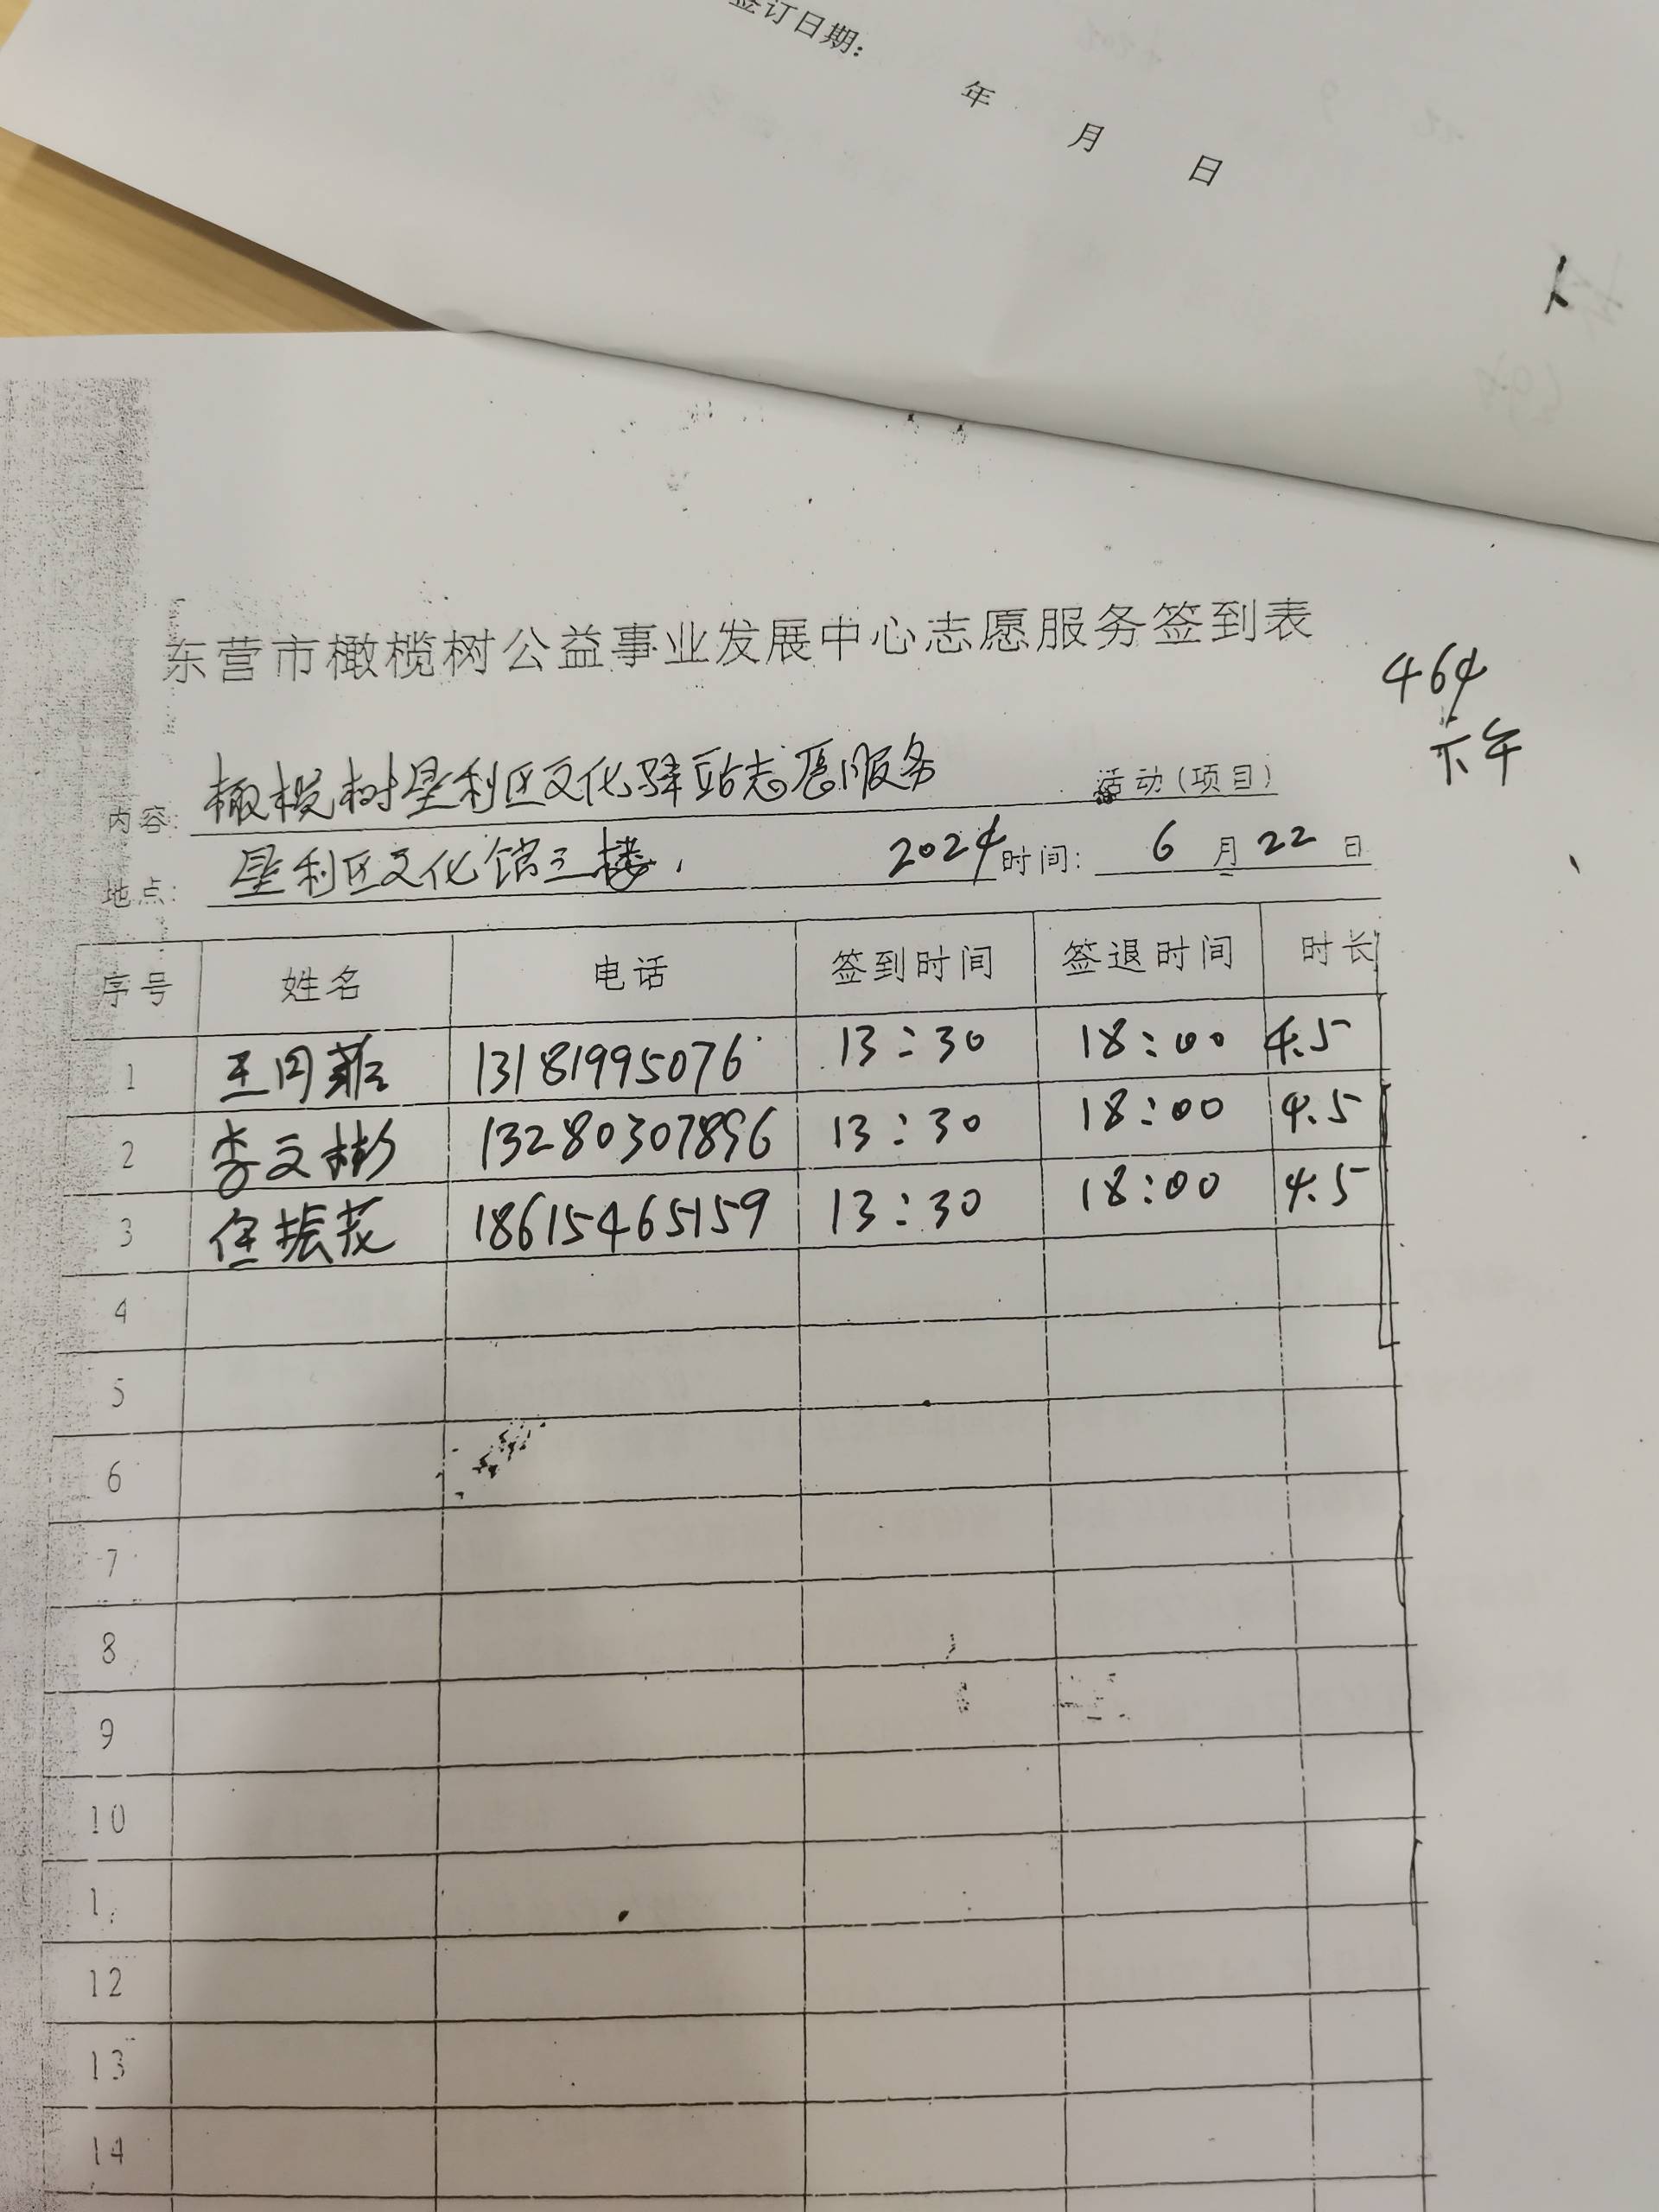 签订日期:
年 月 日
东营市橄榄树公益事业发展中心志愿服务签到表
464
下午
内容: 橄榄树垦利区文化驿站志愿服务 活动(项目)
地点: 垦利区文化馆三楼. 2024 时间: 6 月 22 日
序号 姓名 电话 签到时间 签退时间 时长
1 王同菊 13181995076 13:30 18:00 4.5
2 李文彬 13280307896 13:30 18:00 4.5
3 任振花 18615465159 13:30 18:00 4.5
4
5
6
7
8
9
10
1
12
13
14